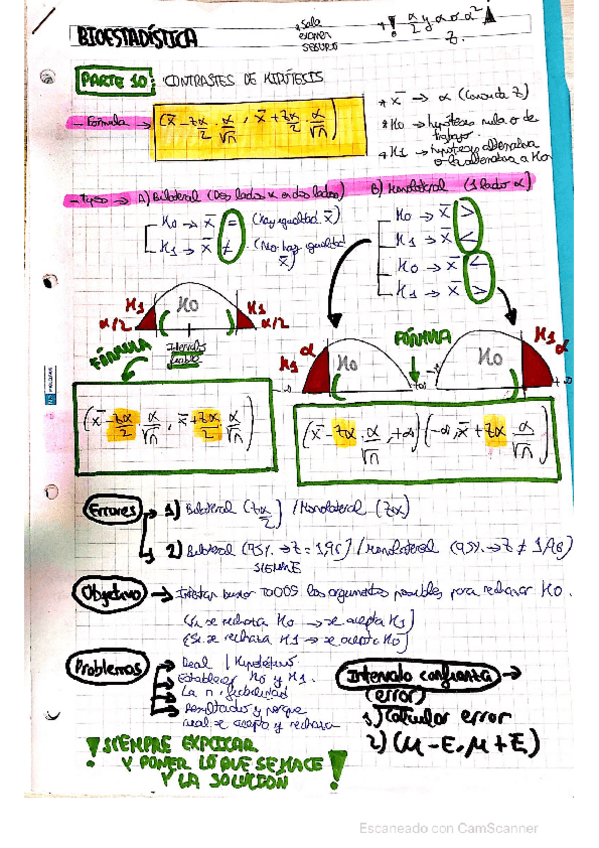 BIOESTADÍSTICA
* Sale examen SEGURO
+! α/2 y α o α² z.
PARTE 10: CONTRASTES DE HIPÓTESIS
- Fórmula → (x̄ - zα/2 · α/√n , x̄ + zα/2 · α/√n)
* x̄ → α (Conocida Z)
* H0 → hipótesis nula o de trabajo.
* H1 → hipótesis alternativa o la alternativa a H0
- Tipos → A) Bilateral (Dos lados α en dos lados)
B) Monolateral (1 lado α)
H0 → x̄ = (Hay igualdad x̄)
H1 → x̄ ≠ (No hay igualdad x̄)
H0 → x̄ >
H1 → x̄ <
H0 → x̄ <
H1 → x̄ >
H1 H0 H1
α/2 α/2
FÓRMULA
Intervalo
H1 α H0
FÓRMULA
H0 H1 α
(x̄ - zα/2 · α/√n , x̄ + zα/2 · α/√n)
(x̄ - zα · α/√n , +α) (-α, x̄ + zα · α/√n)
Errores
1) Bilateral (zα/2) / Monolateral (zα)
2) Bilateral (95% → z = 1,96) / Monolateral (95% → z ≠ 1,96)
SIEMPRE
Objetivo → Intentar buscar TODOS los argumentos posibles para rechazar H0.
(Si se rechaza H0 → se acepta H1)
(Si se rechaza H1 → se acepta H0)
Problemas
Real / Hipotético
Establecer H0 y H1.
La n. fiabilidad
Resultados y porque
cual se acepta y rechaza
Intervalo confianza →
(error)
1) Calcular error
2) (μ - E, μ + E)
¡SIEMPRE EXPLICAR
Y PONER LO QUE SE HACE
Y LA SOLUCIÓN!
Escaneado con CamScanner